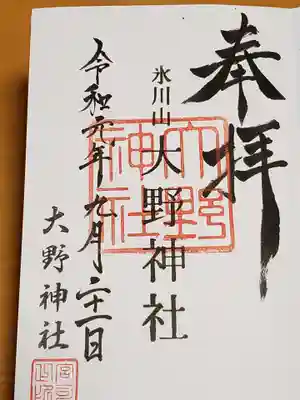 奉拝
氷川山 大野神社
大野神社
令和元年九月二十一日
大野神社